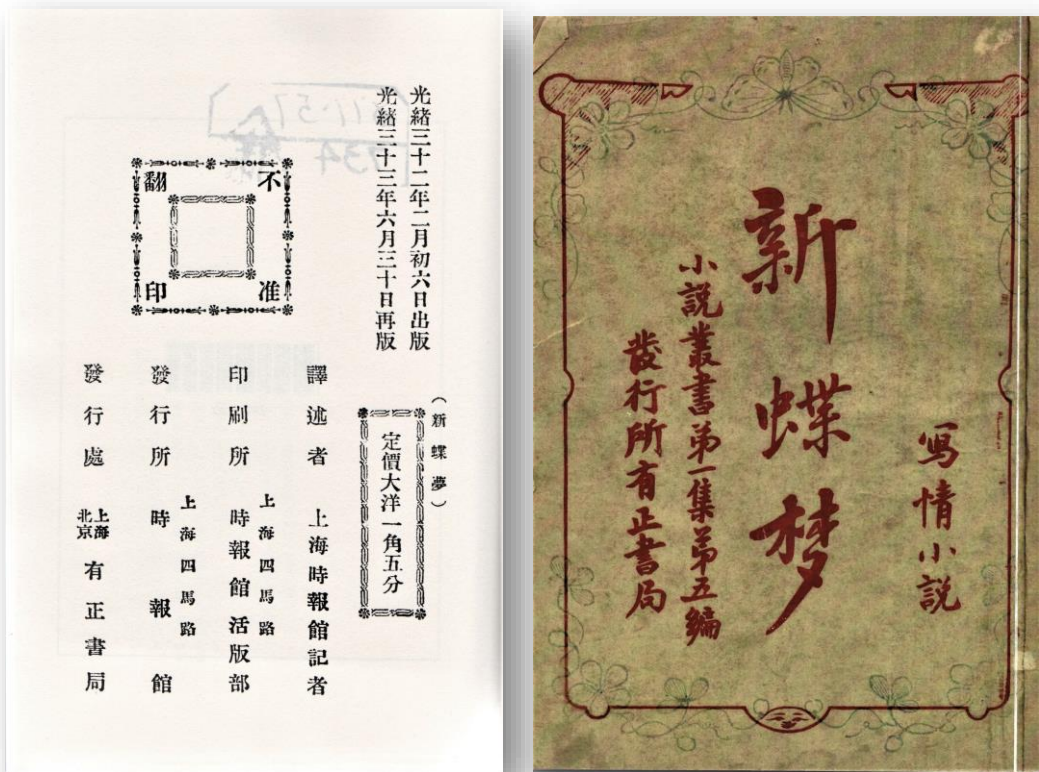 光緒三十二年二月初六日出版
光緒三十三年六月三十日再版
不准翻印
（新蝶夢）
定價大洋一角五分
譯述者 上海時報館記者
印刷所 上海四馬路 時報館活版部
發行所 上海四馬路 時報館
發行處 上海 北京 有正書局
寫情小說
新蝶梦
小說叢書第一集第五編
發行所有正書局